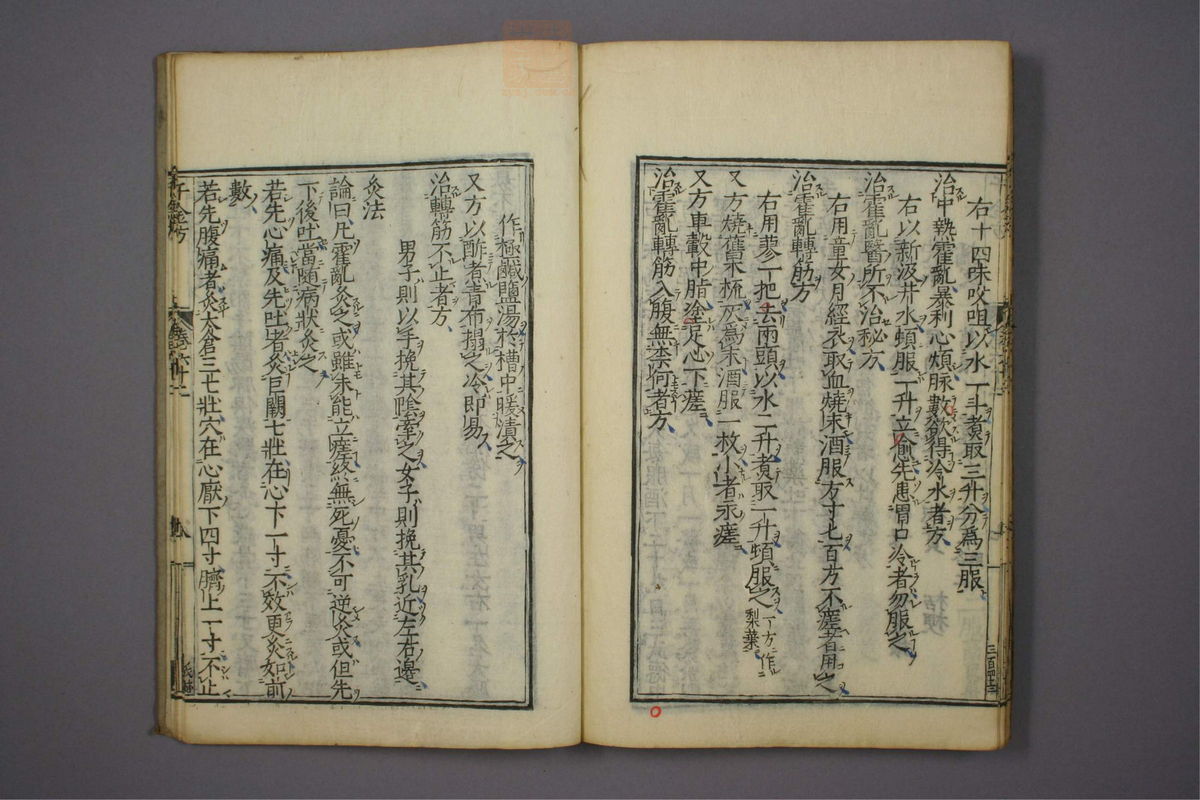 右十四味㕮咀以水一斗煮取三升分爲三服
治中熱霍亂暴利心煩脉數欲得冷水者方
右以新汲井水頓服一升立愈先患胃口冷者勿服之
治霍亂醫所不治秘方
右用童女月經衣取血燒末酒服方寸匕百方不瘥者用之
治霍亂轉筋方
右用蓼一把去兩頭以水二升煮取一升頓服之一方作梨葉
又方燒舊木梳灰爲末酒服一枚小者永瘥
又方車轂中脂塗足心下瘥
治霍亂轉筋入腹無柰何者方
作極鹹鹽湯於槽中暖漬之
又方以酢煮青布搨之冷即易
治轉筋不止者方
男子則以手挽其陰牽之女子則挽其乳近左右邊
灸法
論曰凡霍亂灸之或雖未能立瘥終無死憂不可逆灸或但先
下後吐當隨病狀灸之
若先心痛及先吐者灸巨闕七壯在心下一寸不效更灸如前
數
若先腹痛者灸太倉二七壯穴在心厭下四寸臍上一寸不止
千金方